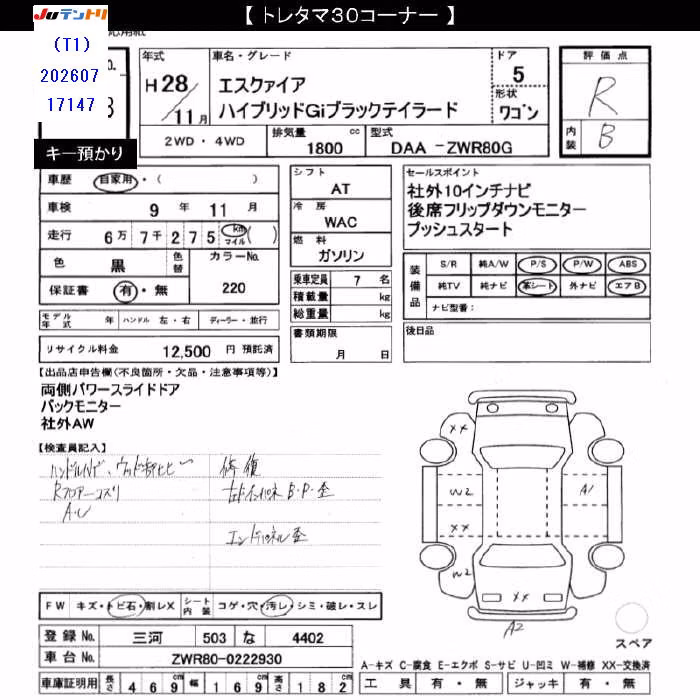 【 トレタマ３０コーナー 】
JUテントリ
(T1)
202607
17147
キー預かり
年式
H 28 / 11 月
車名・グレード
エスクァイア
ハイブリッドGiブラックテイラード
ドア
5
形状
ワゴン
評価点
R
内装
B
2WD ・ 4WD
排気量 1800 cc
型式 DAA -ZWR80G
車歴 自家用・( )
車検 9 年 11 月
走行 6万 7千 2 7 5 km マイル ( )
色 黒 色替
カラーNo. 220
保証書 有・無
モデル年式 年 ハンドル 左・右 ディーラー・並行
リサイクル料金 12,500 円 預託済
シフト
AT
冷房
WAC
燃料
ガソリン
乗車定員 7 名
積載量 kg
総重量 kg
書類期限
月 日
セールスポイント
社外10インチナビ
後席フリップダウンモニター
プッシュスタート
装備品
S/R 純A/W P/S P/W ABS
純TV 純ナビ 革シート 外ナビ エアB
ナビ型番：
後日品
【出品店申告欄(不良箇所・欠品・注意事項等)】
両側パワースライドドア
バックモニター
社外AW
【検査員記入】
Rフロアーコスリ
A・U
修復
エンドパネル歪
XX
W2
XX
W2
A1
XX
A2
スペア
FW キズ・トビ石・割レX
シート内装 コゲ・穴・汚レ・シミ・破レ・スレ
登録 No. 三河 503 な 4402
車台 No. ZWR80-0222930
車庫証明用 長さ 4 6 9 cm 幅 1 6 9 cm 高さ 1 8 2 cm
A-キズ C-腐食 E-エクボ S-サビ U-凹ミ W-補修 XX-交換済
工具 有・無 ジャッキ 有・無